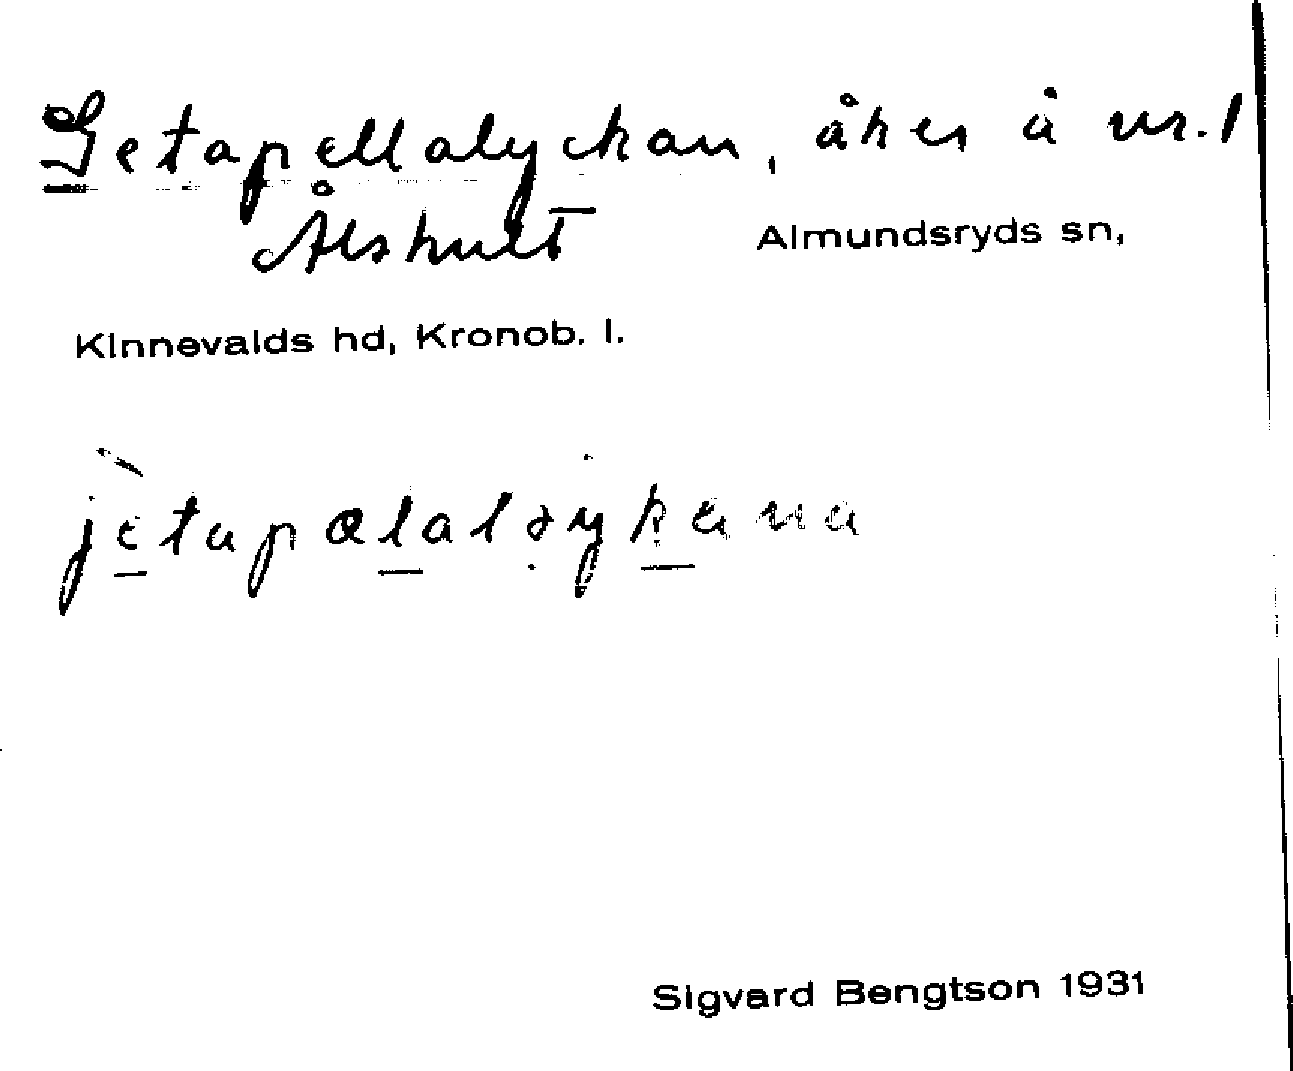 Getapellalyckan, åker å nr. 1
Ålshult Almundsryds sn,
Kinnevalds hd, Kronob. l.
Sigvard Bengtson 1931